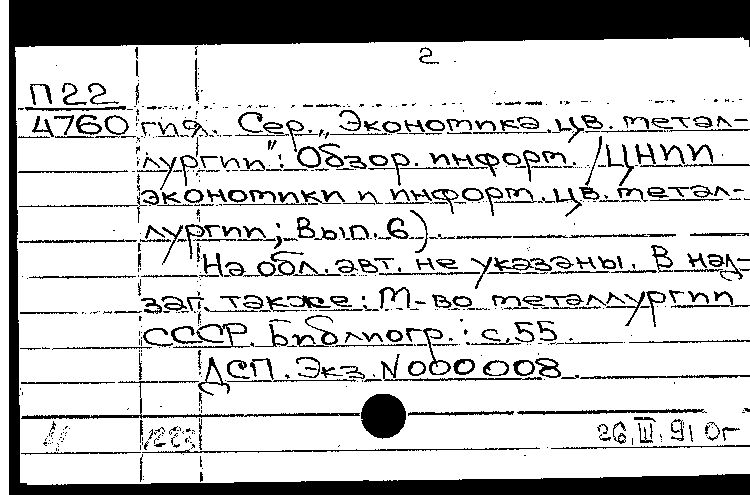 2
П22
4760 гия. Сер. „Экономика цв. метал-
лургии": Обзор. информ. / ЦНИИ
экономики и информ. цв. метал-
лургии; Вып. 6).
На обл. авт. не указаны. В над-
заг. также: М-во металлургии
СССР. Библиогр.: с. 55.
ДСП. Экз. N 000008.
1223 26.III.91 Ог